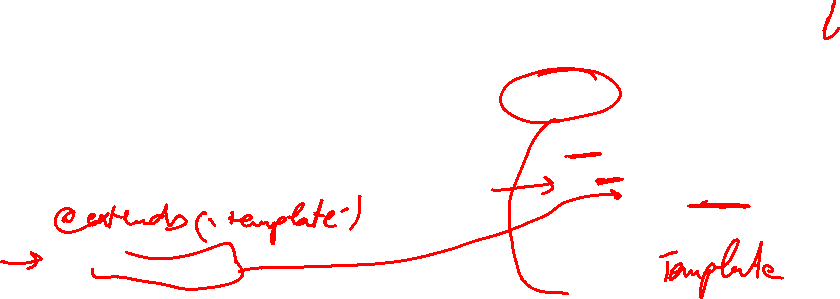 @extends('template')
Template